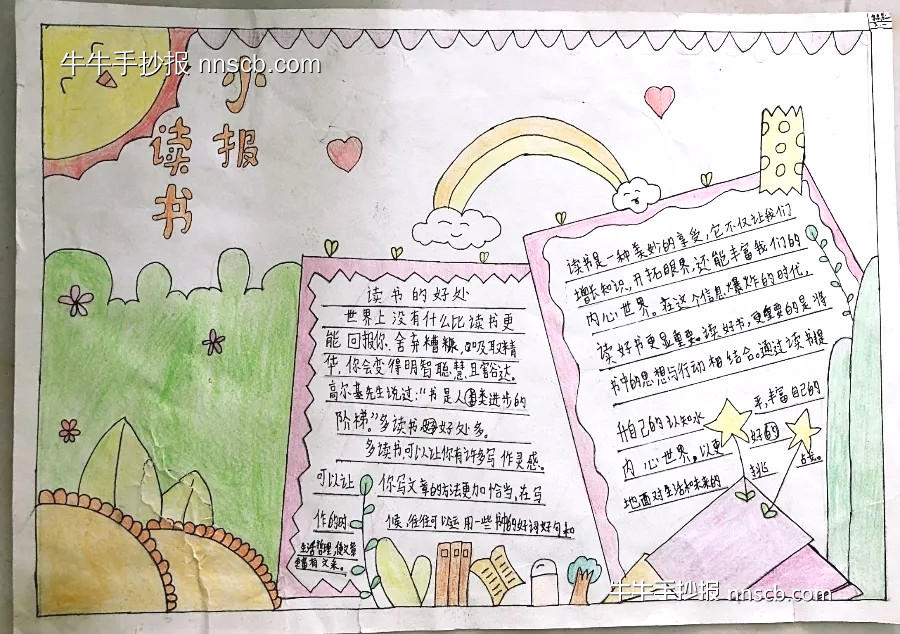 牛牛手抄报 nnscb.com
小报
读书
读书的好处
世界上没有什么比读书更
能回报你、舍弃糟糠,吸取精
华,你会变得明智聪慧且豁达。
高尔基先生说过:“书是人类进步的
阶梯。”多读书好处多。
多读书,可以让你有许多写作灵感。
可以让你写文章的方法更加恰当,在写
作的时候,往往可以运用一些书中的好词好句和
生活哲理,使文章
富有文采。
读书是一种美妙的享受,它不仅让我们
增长知识,开拓眼界,还能丰富我们的
内心世界。在这个信息爆炸的时代,
读好书更显重要。读好书,更重要的是将
书中的思想与行动相结合。通过读书提
升自己的认知水平,丰富自己的
内心世界。以更好的
地面对生活和未来的挑战。
牛牛手抄报 nnscb.com